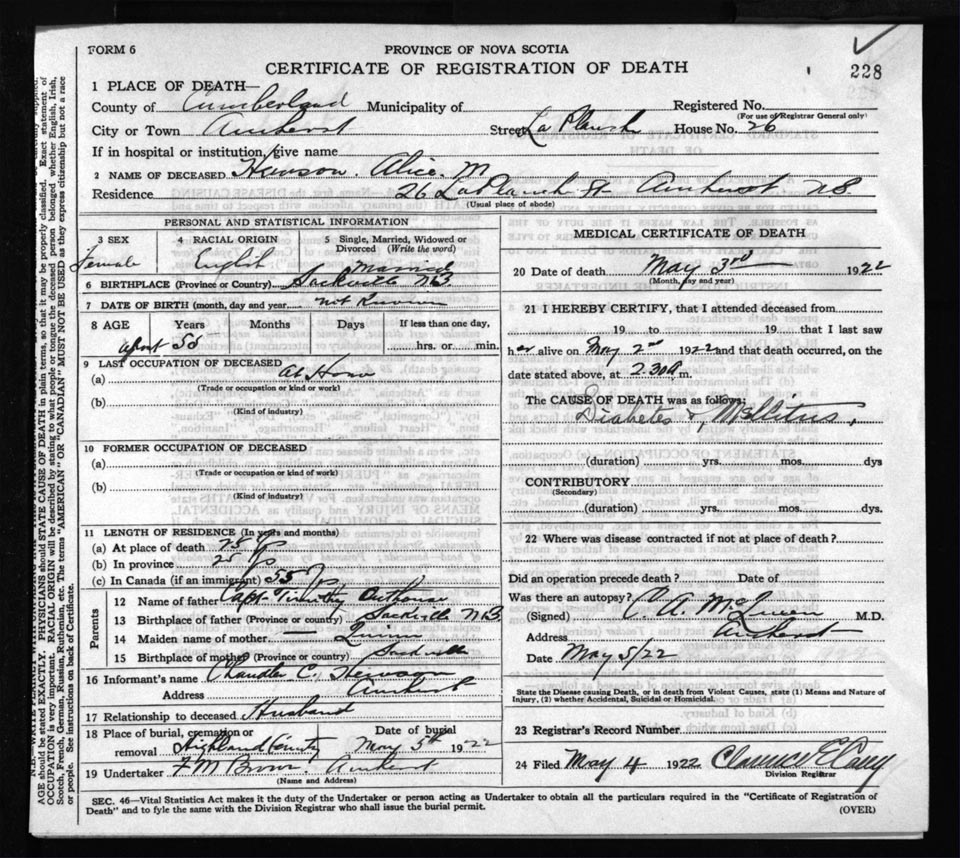 FORM 6
PROVINCE OF NOVA SCOTIA
CERTIFICATE OF REGISTRATION OF DEATH
228
1 PLACE OF DEATH—
County of Cumberland Municipality of Registered No.
(For use of Registrar General only)
City or Town Amherst Street La Planch House No. 26
If in hospital or institution, give name
2 NAME OF DECEASED Hewson Alice M
Residence 26 LaPlanch St Amherst NS
(Usual place of abode)
PERSONAL AND STATISTICAL INFORMATION
3 SEX 4 RACIAL ORIGIN 5 Single, Married, Widowed or Divorced (Write the word)
Female English Married
6 BIRTHPLACE (Province or Country) Sackville NB.
7 DATE OF BIRTH (month, day and year) not Known
8 AGE Years Months Days If less than one day,
55 hrs. or min.
9 LAST OCCUPATION OF DECEASED
(a) At Home
(Trade or occupation or kind or work)
(b)
(Kind of industry)
10 FORMER OCCUPATION OF DECEASED
(a)
(Trade or occupation or kind of work)
(b)
(Kind of industry)
11 LENGTH OF RESIDENCE (In years and months)
(a) At place of death 25 yrs
(b) In province 25 yrs
(c) In Canada (if an immigrant) 55 yrs.
Parents
12 Name of father Capt. Timothy Outhouse
13 Birthplace of father (Province or country) Sackville NB
14 Maiden name of mother — Quinn
15 Birthplace of mother (Province or country) Sackville
16 Informant's name Chandler C. Hewson
Address Amherst
17 Relationship to deceased Husband
18 Place of burial, cremation or removal Date of burial
Highland May 5th 1922
19 Undertaker F M Brown Amherst
(Name and Address)
MEDICAL CERTIFICATE OF DEATH
20 Date of death May 3rd 1922
(Month, day and year)
21 I HEREBY CERTIFY, that I attended deceased from
19 to 19 that I last saw
her alive on May 2nd 1922 and that death occurred, on the
date stated above, at 2.30 a m.
The CAUSE OF DEATH was as follows:
Diabetes Mellitus,
(duration) yrs. mos. dys
CONTRIBUTORY
(Secondary)
(duration) yrs. mos. dys.
22 Where was disease contracted if not at place of death?
Did an operation precede death? Date of
Was there an autopsy?
(Signed) C A. McQueen M.D.
Address Amherst
Date May 5/22
State the Disease causing Death, or in death from Violent Causes, state (1) Means and Nature of
Injury, (2) whether Accidental, Suicidal or Homicidal.
23 Registrar's Record Number
24 Filed May 4 1922 Clarence E
Division Registrar
SEC. 46—Vital Statistics Act makes it the duty of the Undertaker or person acting as Undertaker to obtain all the particulars required in the "Certificate of Registration of
Death" and to fyle the same with the Division Registrar who shall issue the burial permit.
(OVER)
AGE should be stated EXACTLY. PHYSICIANS should STATE CAUSE OF DEATH in plain terms, so that it may be properly classified. Exact statement of
OCCUPATION is very important. RACIAL ORIGIN will be described by stating to what people or tongue the deceased person belonged whether English, Irish,
Scotch, French, German, Russian, Ruthenian, etc. The terms "AMERICAN" OR "CANADIAN" MUST NOT BE USED as they express citizenship but not a race
or people. See instructions on back of Certificate.